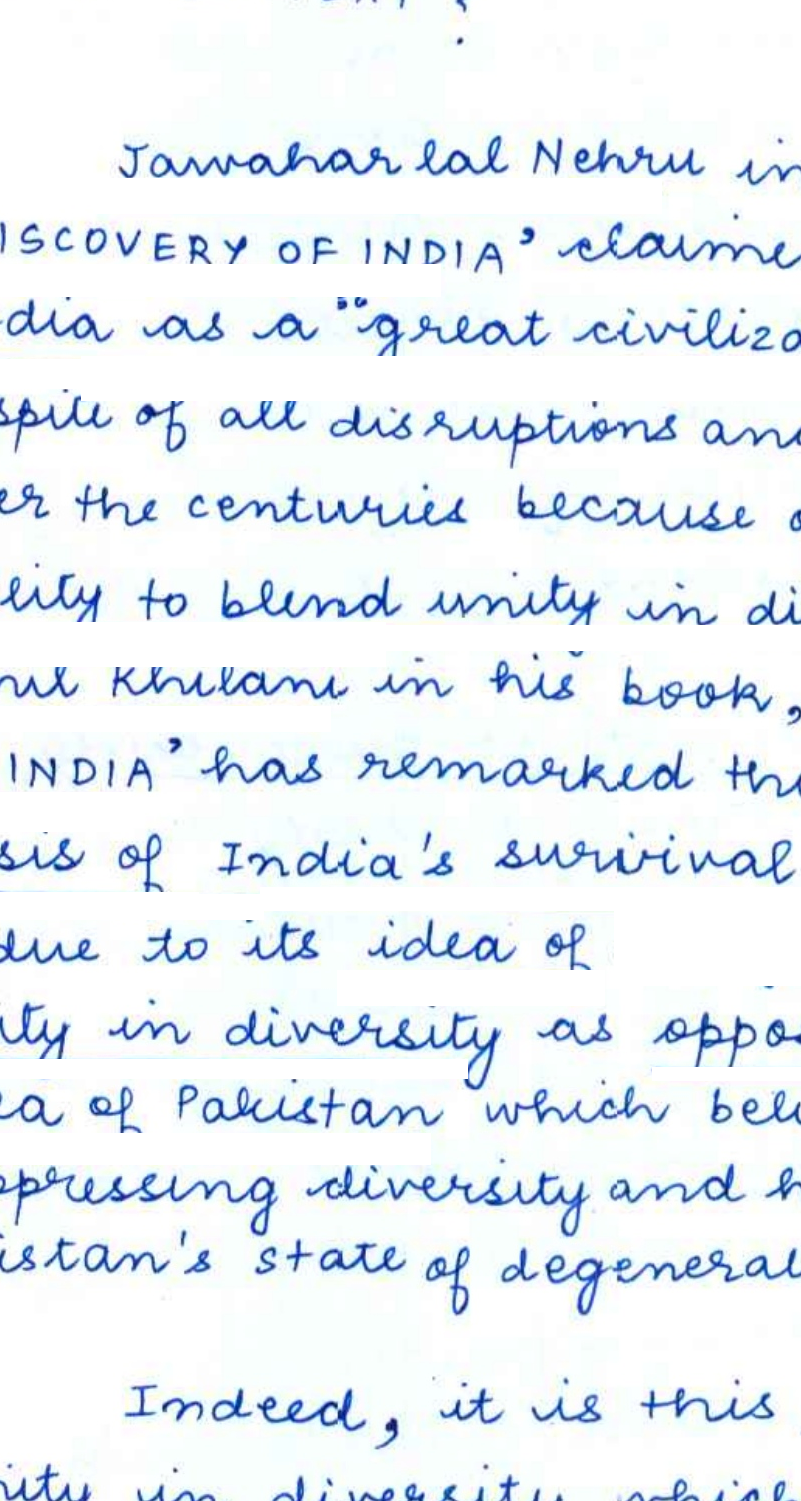 Jawaharlal Nehru in
ISCOVERY OF INDIA' claime
dia as a "great civiliza
spite of all disruptions and
er the centuries because o
lity to blend unity in di
nil Khilani in his book,
INDIA' has remarked tha
sis of India's survival
due to its idea of
ity in diversity as oppo
ea of Pakistan which beli
ppressing diversity and h
istan's state of degenerat
Indeed, it is this
nity in diversity which